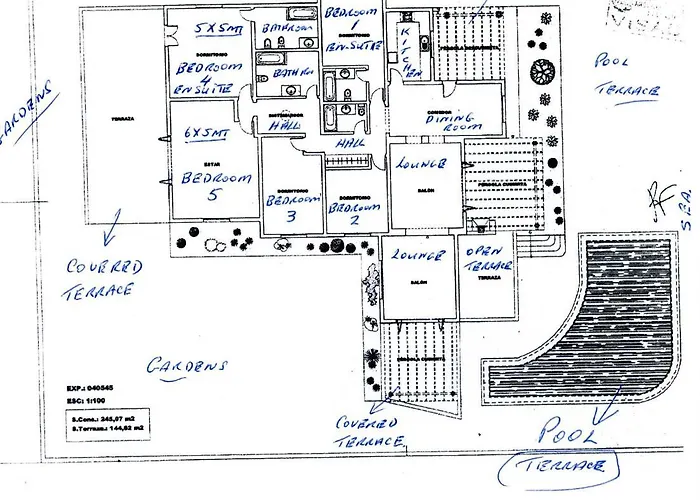 5X5MT
BATHROOM
BEDROOM
1
DORMITORIO
EN-SUITE
KITCHEN
DORMITORIO
BEDROOM
4
EN SUITE
BATH RM
POOL
TERRACE
GARDENS
TERRAZA
DISTRIBUIDOR
HALL
COMEDOR
DINING
ROOM
6X5MT
HALL
ESTAR
BEDROOM
5
DORMITORIO
BEDROOM
3
DORMITORIO
BEDROOM
2
LOUNGE
SALÓN
PERGOLA CUBIERTA
SEA
COVERED
TERRACE
LOUNGE
SALÓN
OPEN
TERRACE
TERRAZA
GARDENS
PERGOLA CUBIERTA
EXP.: 040545
ESC: 1:100
S.Cons.: 245,97 m2
S.Terraza.: 144,62 m2
COVERED
TERRACE
POOL
TERRACE